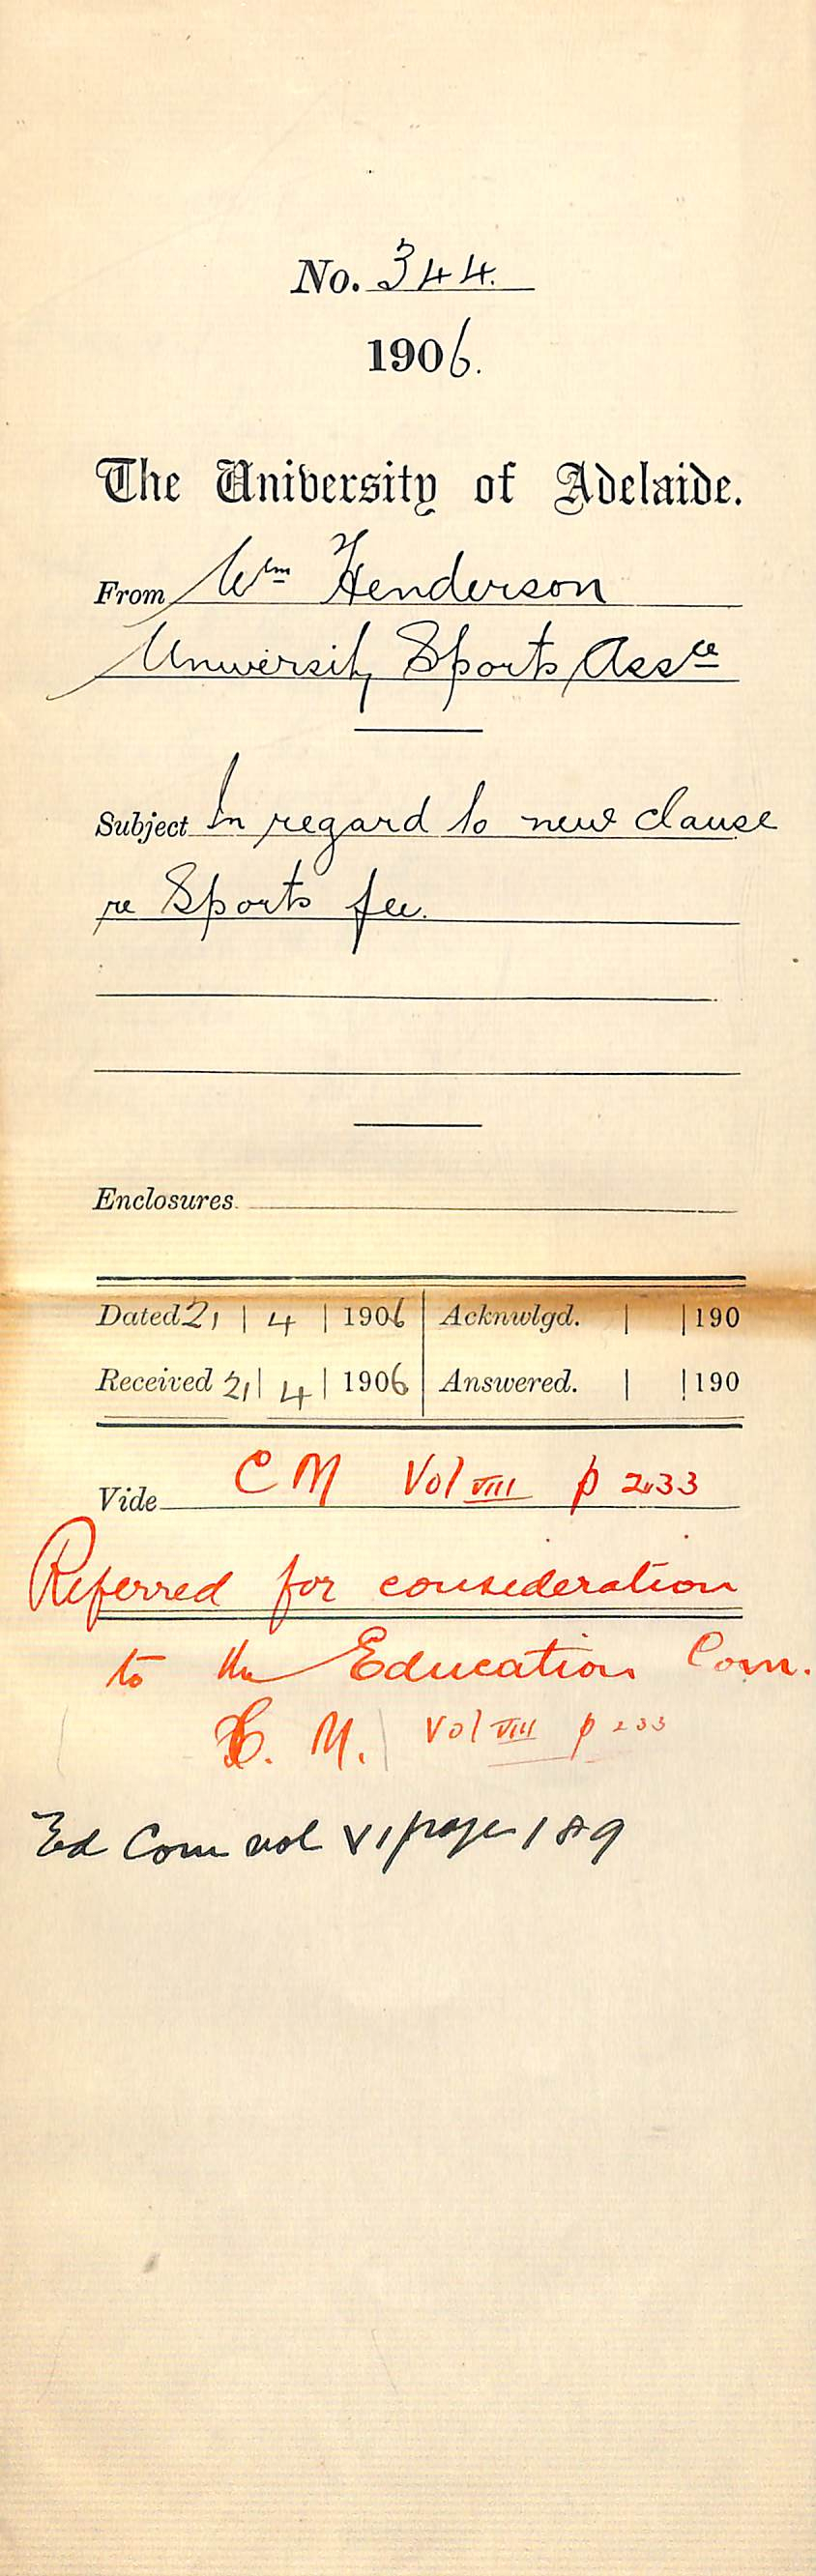 No. 344.
1906.
The University of Adelaide.
From Wm Henderson
University Sports Assce
Subject In regard to new clause
re Sports fee.
Enclosures
Dated 21 | 4 | 1906 Acknwlgd. | | 190
Received 21 | 4 | 1906 Answered. | | 190
Vide C M Vol VIII p 233
Referred for consideration
to the Education Com.
C. M. Vol VIII p 233
Ed Com vol VI page 189